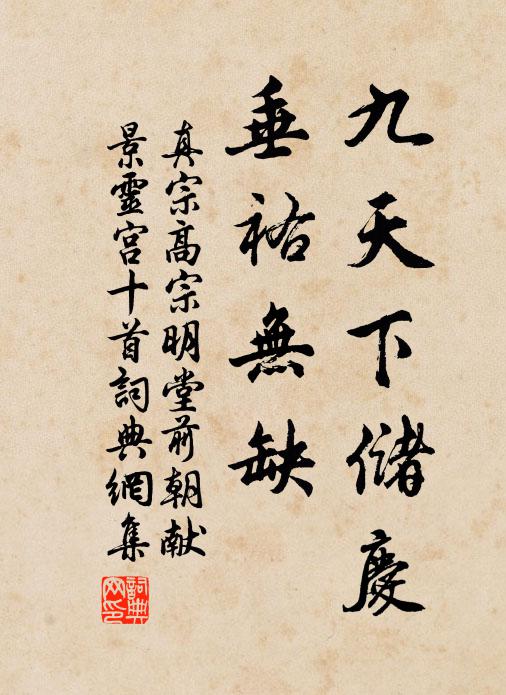 九天下儲慶
垂祐無缺
真宗高宗明堂前朝献
景靈宮十首詞典網集
詞典网印